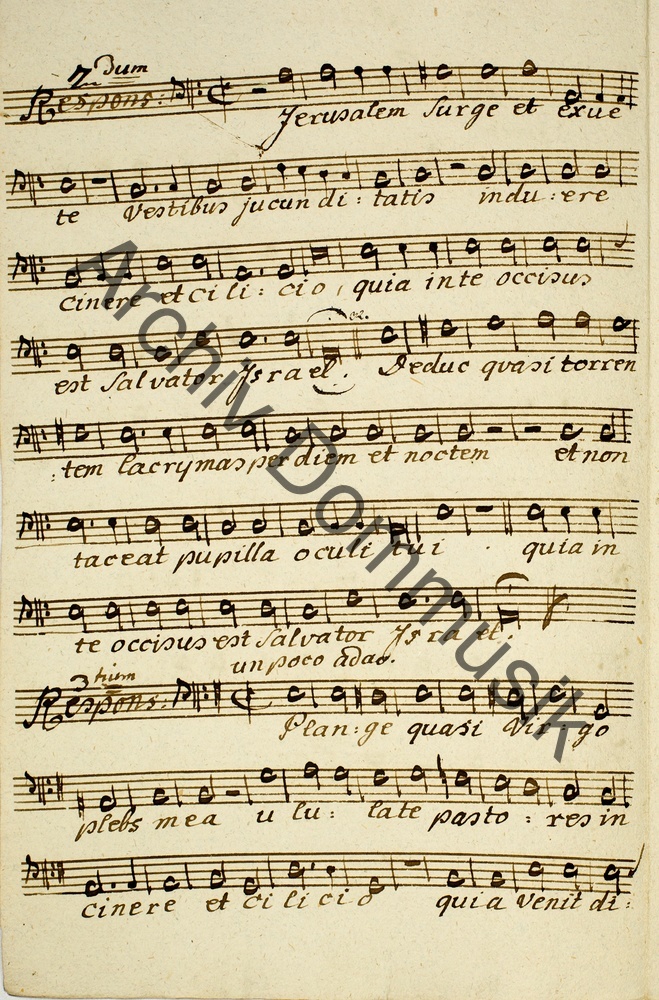 2dum
Respons:
Jerusalem surge et exue
te vestibus jucundi: tatis indu: ere
cinere et cili: cio, quia in te occisus
est salvator Israel. Deduc quasi torren
:tem lacrymas per diem et noctem et non
taceat pupilla oculi tui quia in
te occisus est salvator Israel.
un poco adag.
3tium
Respons:
Plan: ge quasi Vir: go
plebs mea ulu: late pasto: res in
cinere et cilicio quia venit di:
Archiv Dommusik